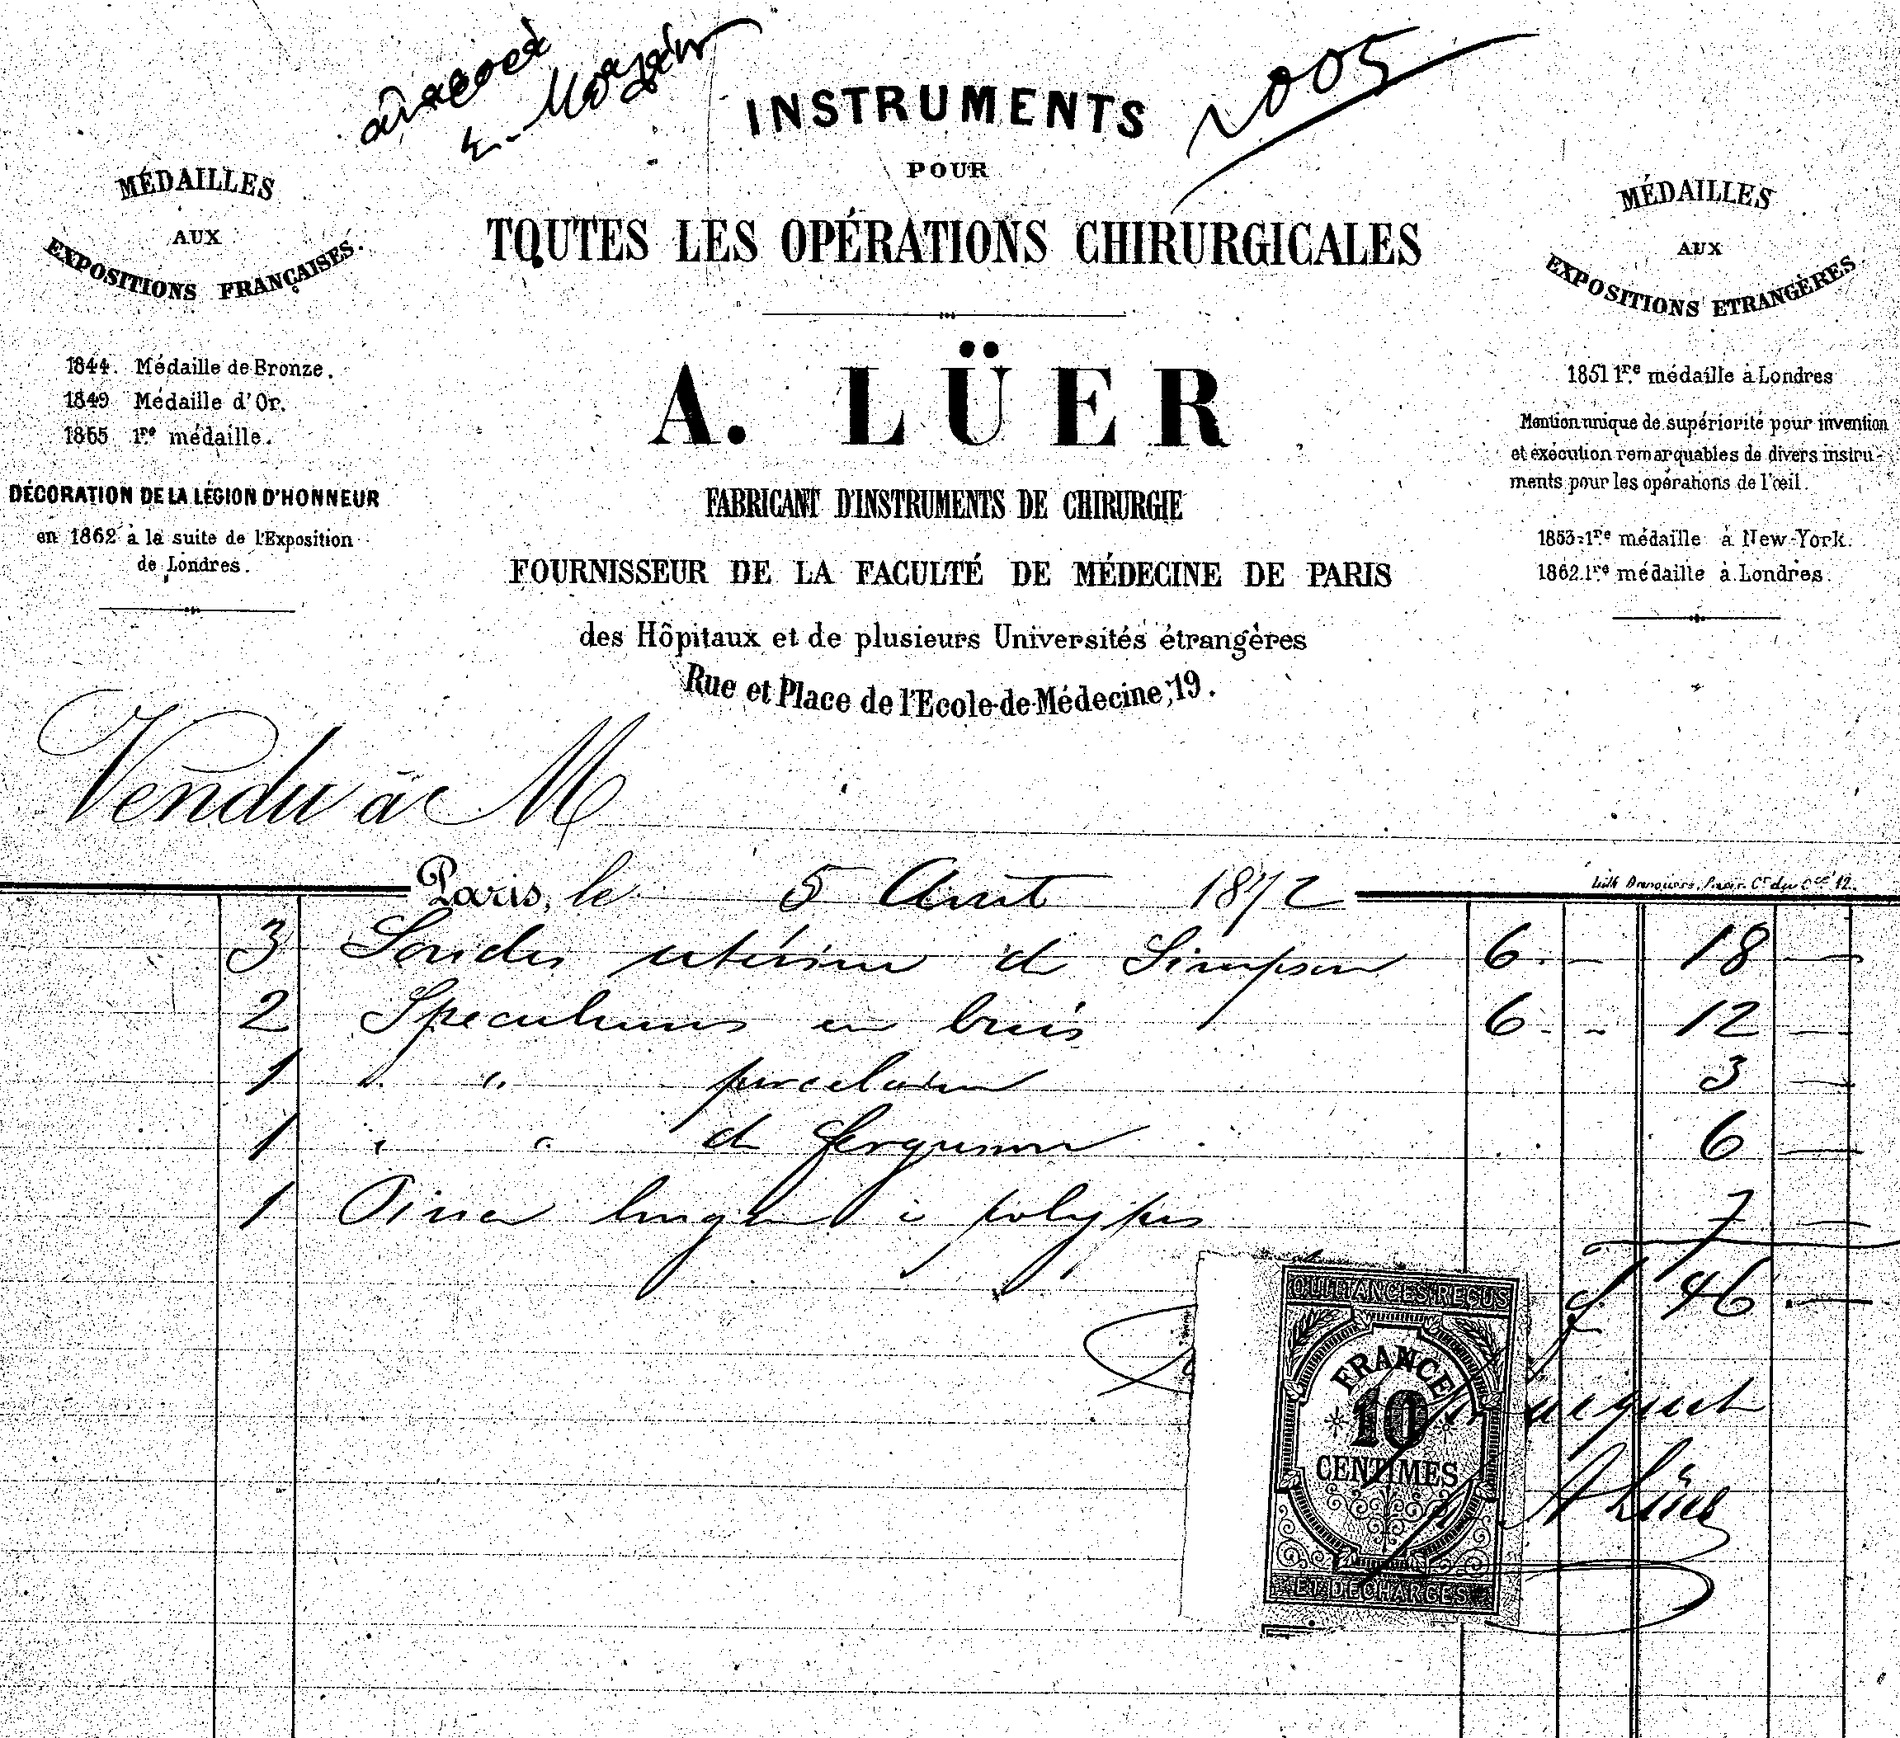 2005
INSTRUMENTS
POUR
TOUTES LES OPÉRATIONS CHIRURGICALES
MÉDAILLES
AUX
EXPOSITIONS FRANÇAISES.
1844. Médaille de Bronze.
1849 Médaille d'Or.
1855 1re médaille.
DÉCORATION DE LA LÉGION D'HONNEUR
en 1862 à la suite de l'Exposition
de Londres.
A. LÜER
FABRICANT D'INSTRUMENTS DE CHIRURGIE
FOURNISSEUR DE LA FACULTÉ DE MÉDECINE DE PARIS
des Hôpitaux et de plusieurs Universités étrangères
Rue et Place de l'Ecole-de-Médecine, 19.
MÉDAILLES
AUX
EXPOSITIONS ETRANGÈRES
1851 1re médaille à Londres
Mention unique de supériorité pour invention
et exécution remarquables de divers instru-
ments pour les opérations de l'œil.
1853-1re médaille à New-York.
1862.1re médaille à Londres.
Vendu à M
Paris, le 5 Aout 1872
3 Sondes utérines de Simpson 6. - 18 —
2 Speculums en buis 6. - 12 —
1 " " porcelaine 3 —
1 " " de Ferguson 6 —
1 Pince longue à polypes 7 —
f 46. —
QUITTANCES REÇUS
FRANCE
10
CENTIMES
ET DÉCHARGES
A Lüer